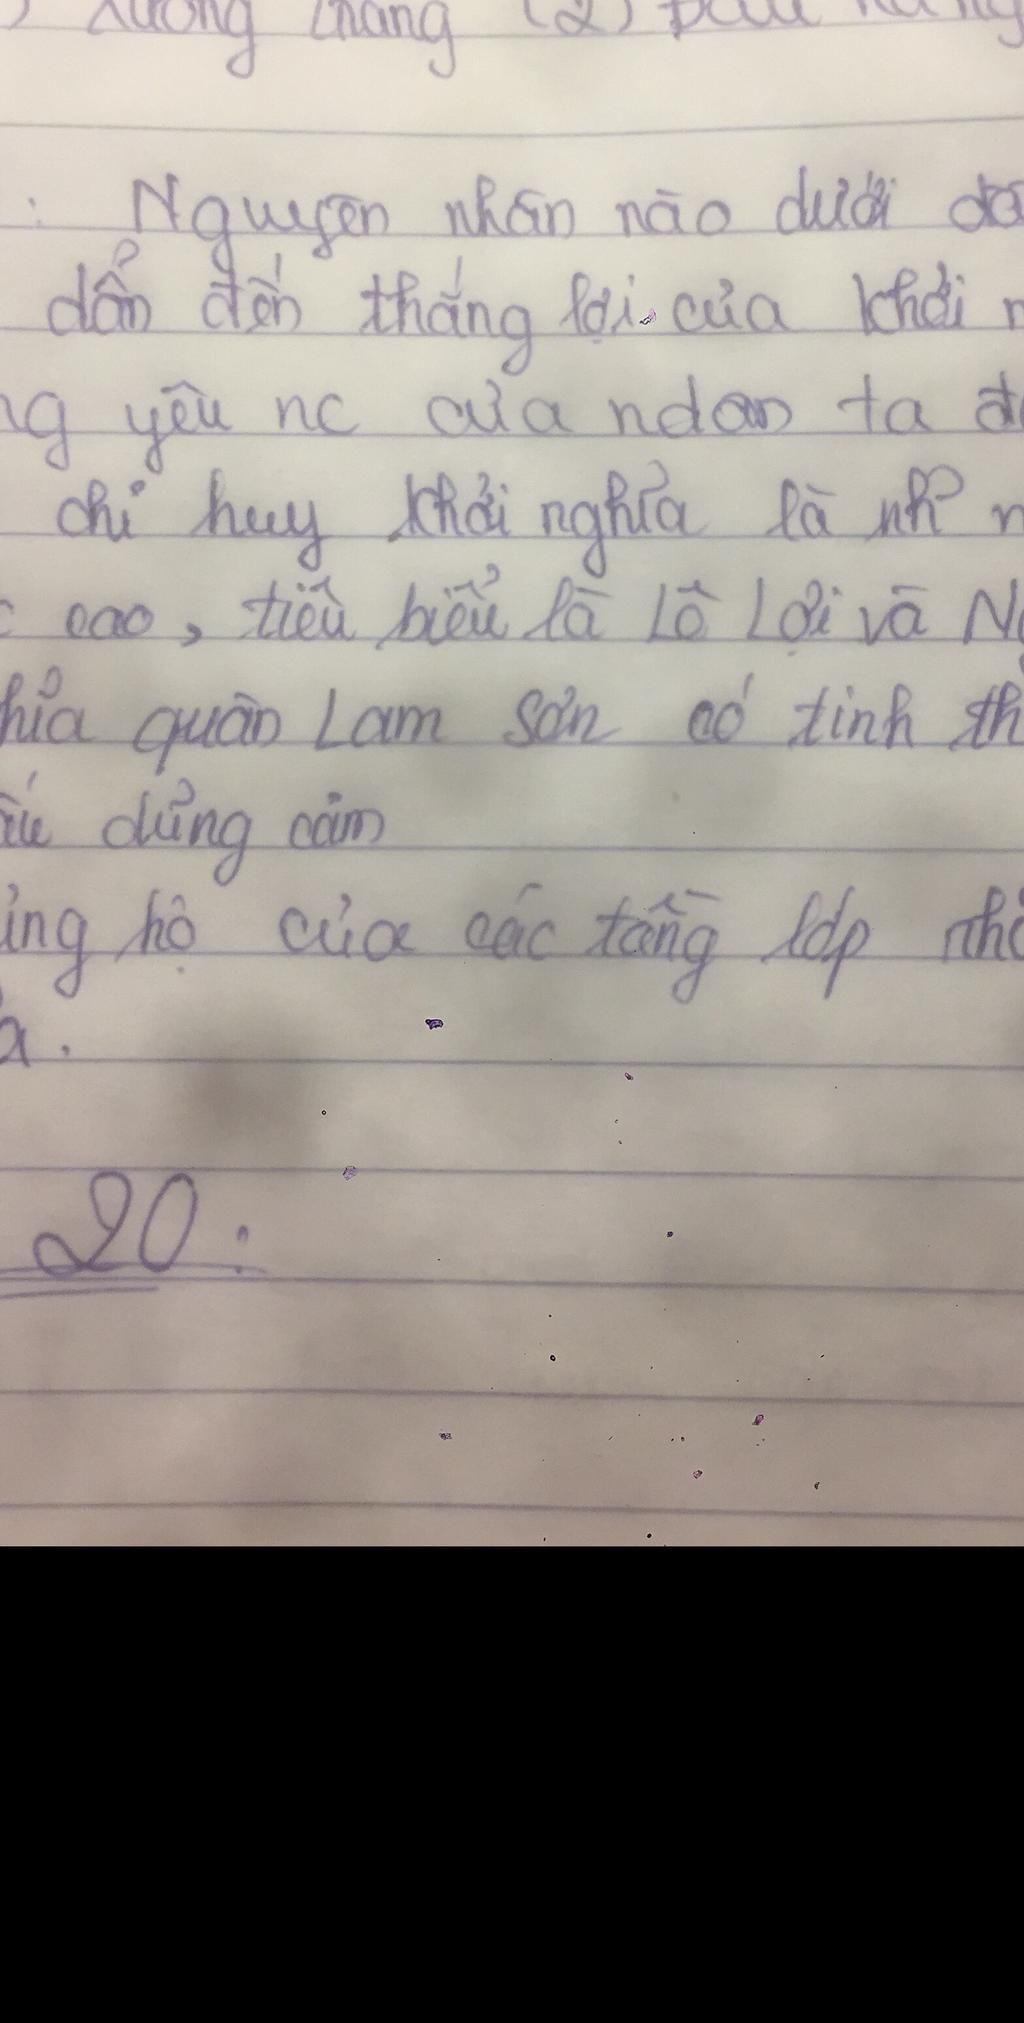 ) Xương Giang (2) Đầu hàng
: Nguyên nhân nào dưới đâ
dẫn đến thắng lợi của khởi n
ng yêu nc của ndân ta đ
chỉ huy khởi nghĩa là nh~ n
c cao, tiêu biểu là Lê Lợi và Ng
hĩa quân Lam Sơn có tinh th
ấu dũng cảm
ủng hộ của các tầng lớp nhâ
a.
20: